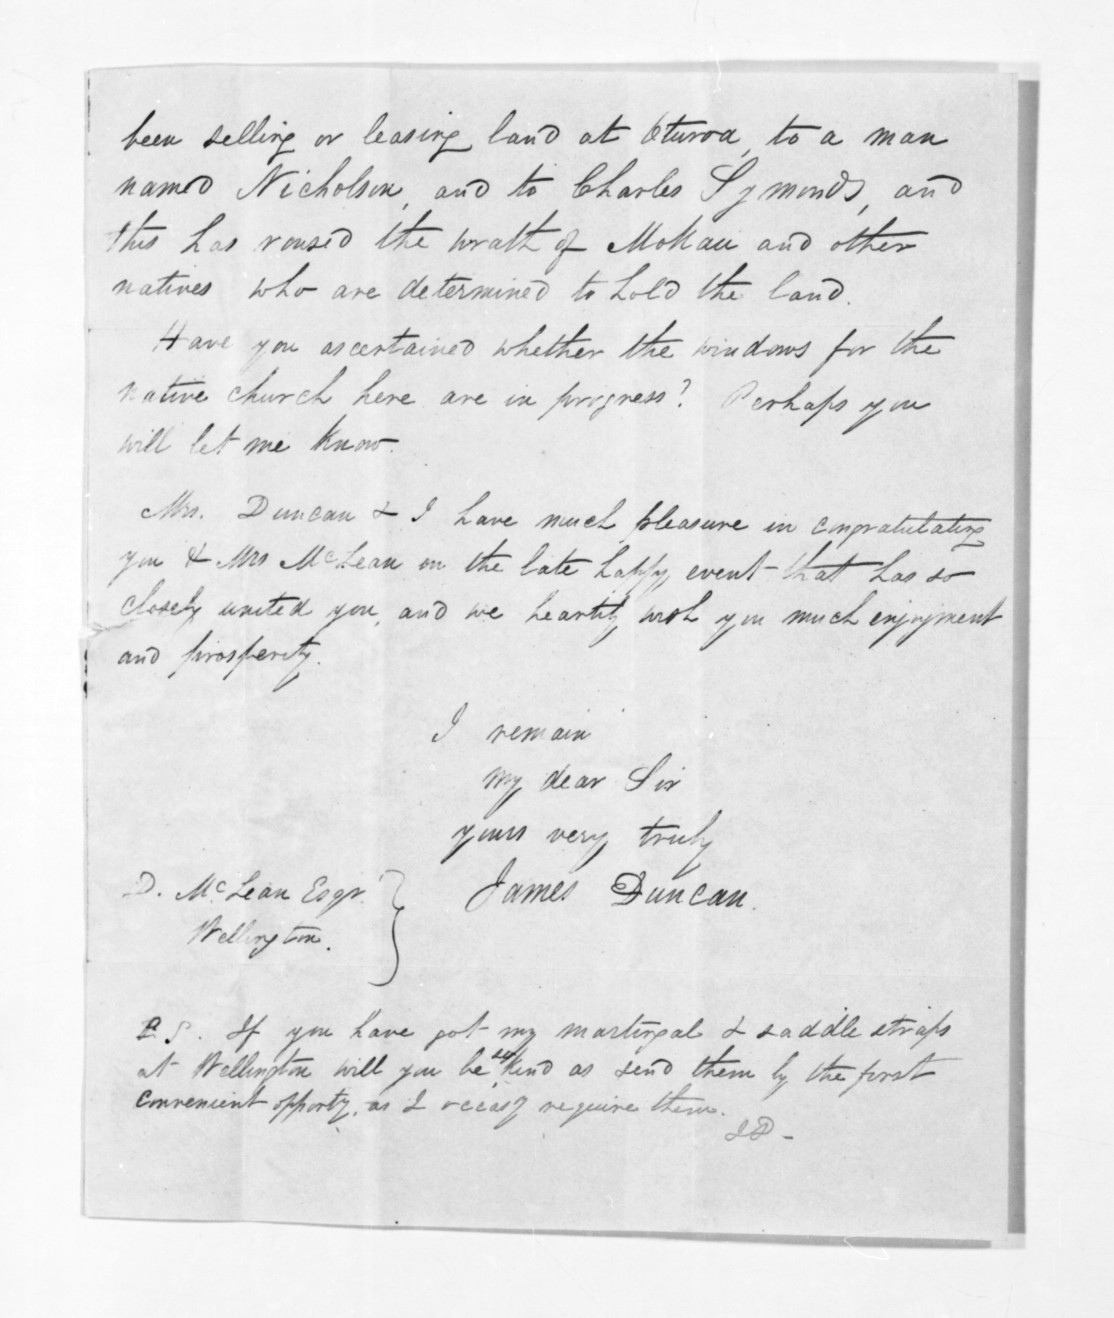 been selling or leasing land at Oturoa, to a man
named Nicholson, and to Charles Symonds, and
this has roused the wrath of Mokau and other
natives who are determined to hold the land.
Have you ascertained whether the windows for the
native church here are in progress? Perhaps you
will let me know.
Mrs. Duncan & I have much pleasure in congratulating
you & Mrs McLean on the late happy event that has so
closely united you, and we heartily wish you much enjoyment
and prosperity.
I remain
my dear Sir
yours very truly
James Duncan.
D. McLean Esqr.
Wellington.
P.S. If you have got my martingal & saddle straps
at Wellington will you be so kind as send them by the first
convenient opporty, as I occasy require them.
JD-